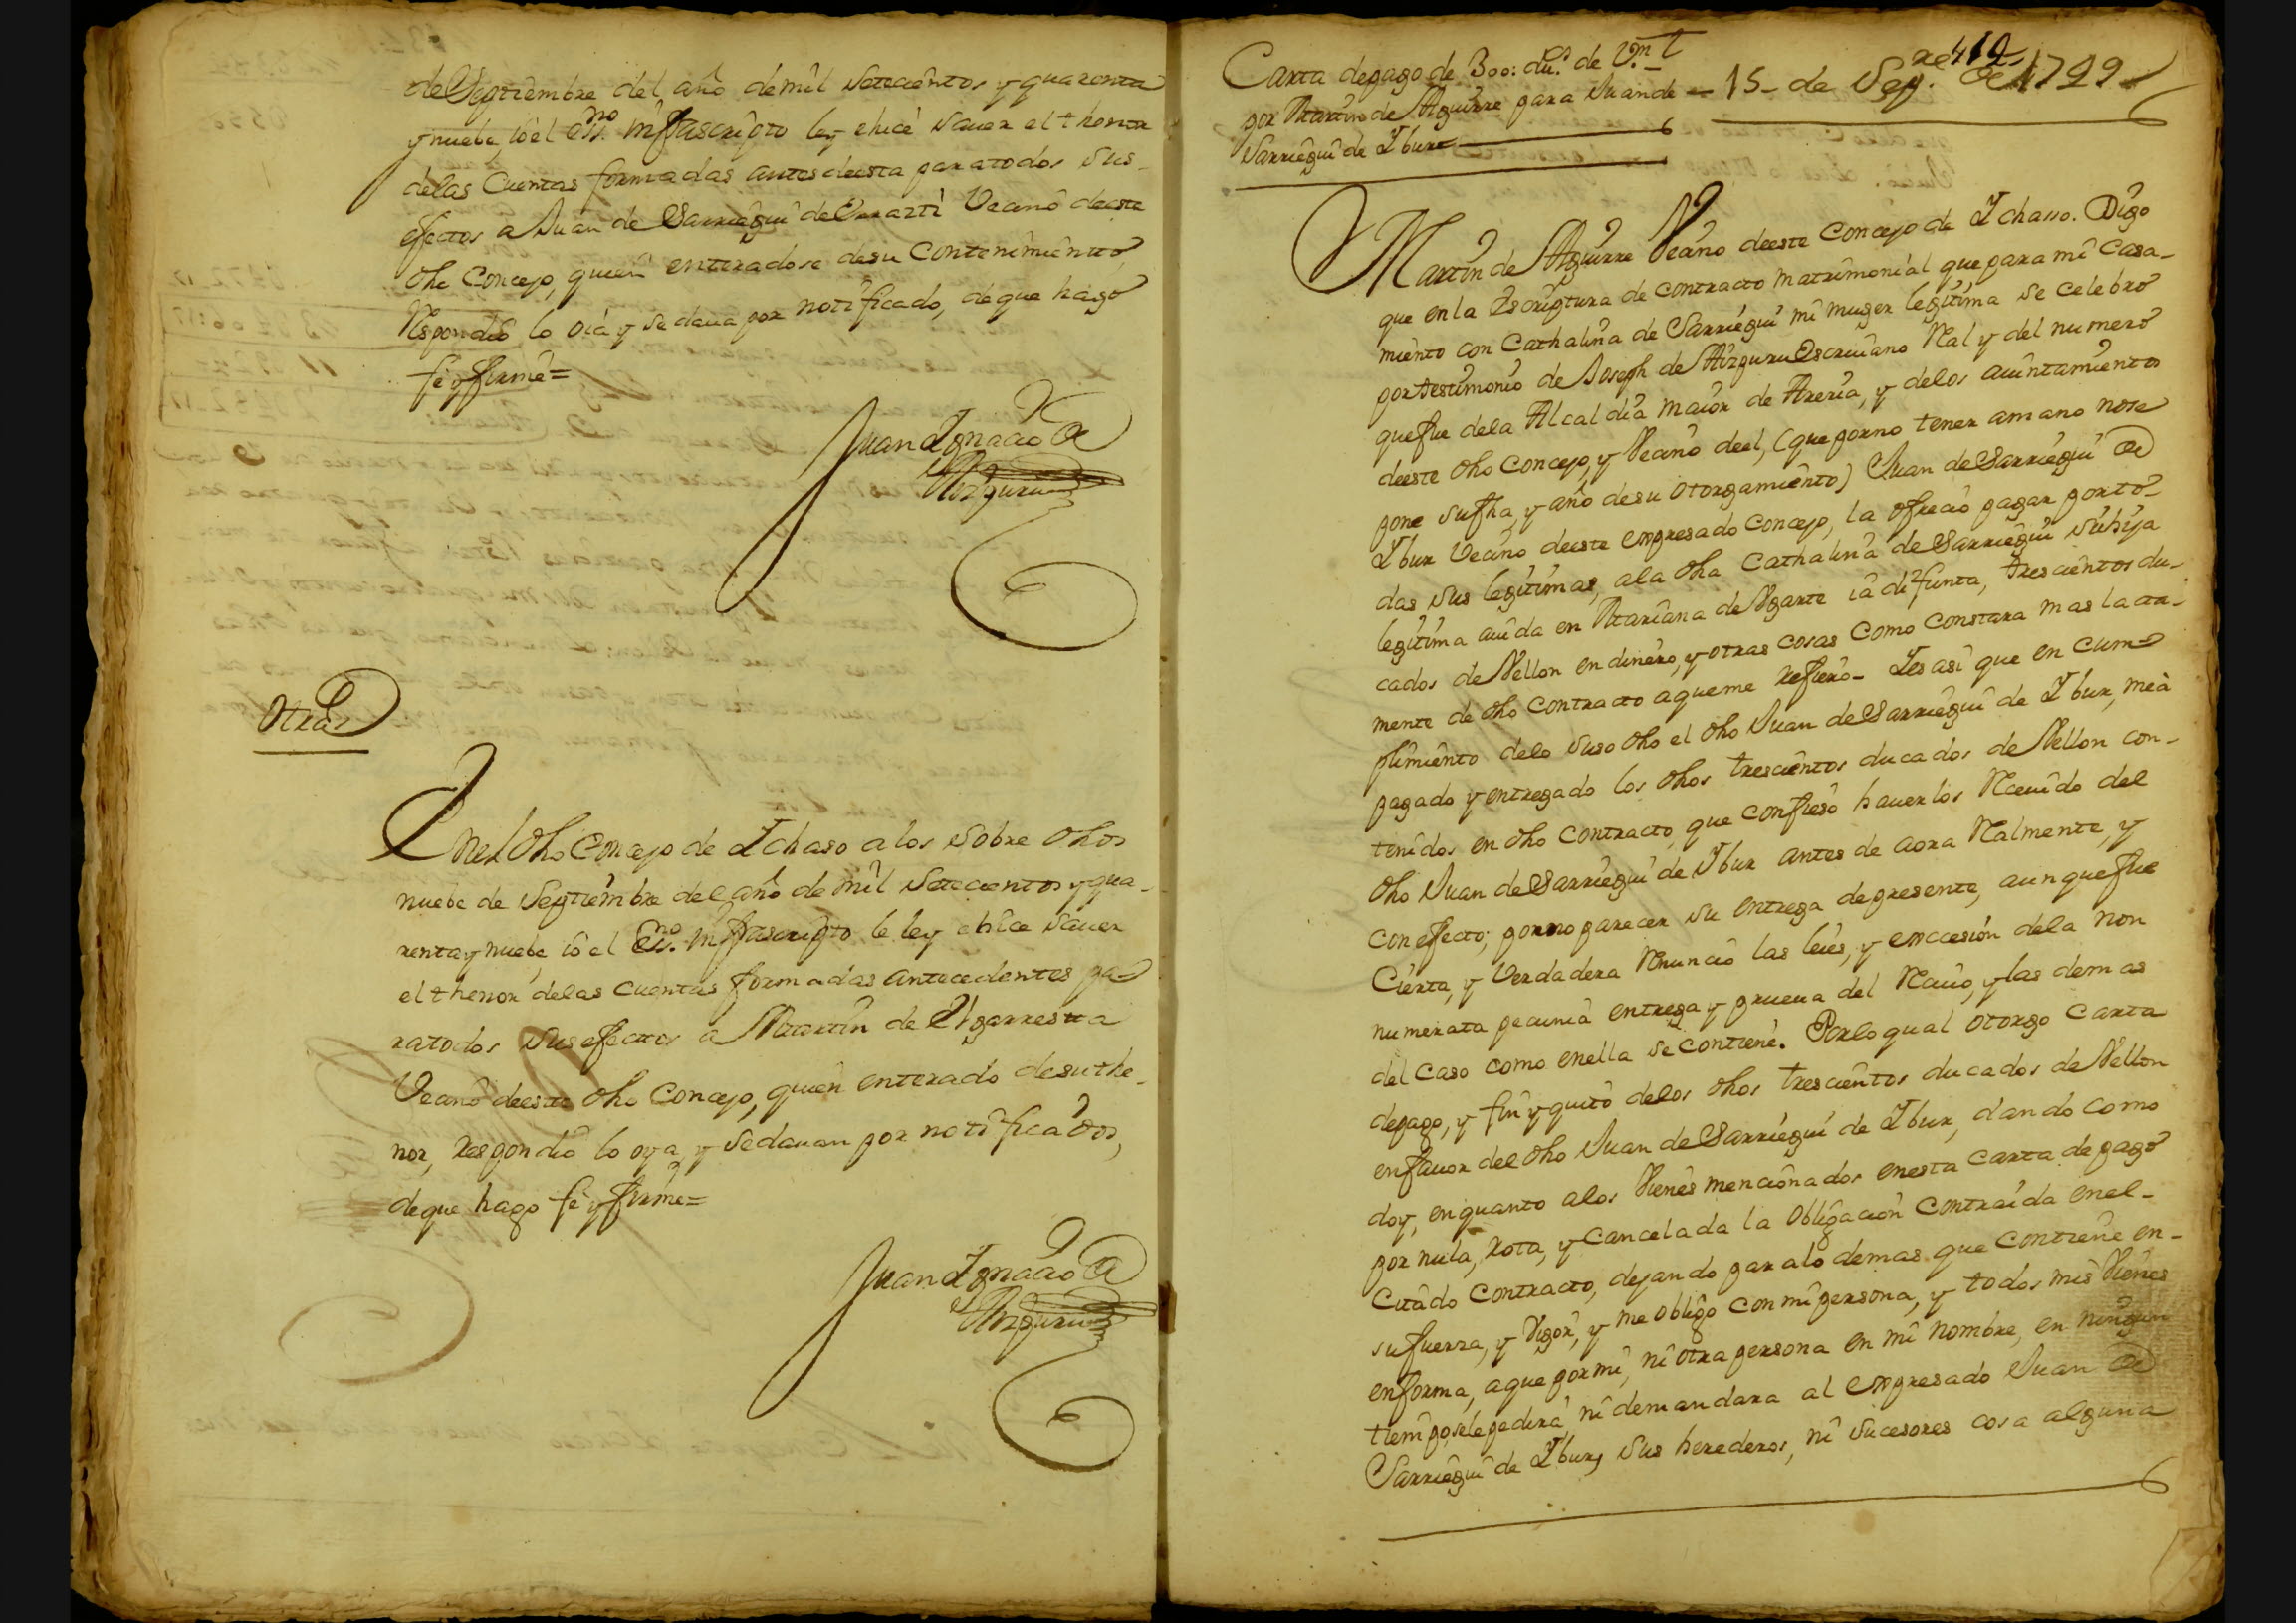 de Septiembre del año demil Setecientos y quarenta
y nuebe, io el essno. infrascripto ley ehicè Sauer el thenor
delas Cuentas formadas antes deesta paratodos Sus
efectos a Juan de Sarriegui de Vecinò deeste
dho Concejo, quien enteradose desu Contenimientto,
Respondiò lo oià y se daua por notificado, deque hago
fe y firmè=
Juan Ignacio de
Aizpuru
Otra
Enel dho Concejo de Ichaso alos Sobre dhos
nuebe de Septiembre del año de mil Setecientos y qua-
renta y nuebe, iò el essno. infrascripto le ley ehice Sauer
el thenor delas Cuentas formadas antecedentes pa
ratodos Sus efectos a Martin de
Vecino deeste dho Concejo, quien enterado desu the-
nor, respondiò lo oya, y Sedauan por notificados,
deque hago fè y firmè=
Juan Ignacio de
Aizpuru
419
Carta depago de 300: dus. de Vn.
por Martin de Aguirre para Juan de
Sarriegui de Ibur=
15- de Sepre. de 1749
Martin de Aguirre Vecino deeste Concejo de Ichasso. Digo
que en la Escriptura de contracto matrimonial que para mi Casa-
miento con Cathalina de Sarriegui mi muger legitima se celebrò
por testimonio de Joseph de Aizpuru Escriuano Real y del numero
que fue dela Alcaldia maior de Areria, y delos aiuntamientos
deeste dho Concejo, y Vecino deel, (que porno tener amano nose
pone su fha, y año desu otorgamiento) Juan de Sarriegui de
Ibur Vecino deeste expresado Concejo, la ofreciò pagar por to-
das sus legitimas, ala dha Cathalina de Sarriegui su hija
legitima auida en Mariana de Vgarte ià difunta, trescientos du-
cados de Vellon en dinero, y otras cosas como constara mas lata-
mente de dho contracto aque me refiero- Ies asi que en cum
plimiento delo suso dho el dho Juan de Sarriegui de Ibur, me à
pagado y entregado los dhos trescientos ducados de Vellon con-
tenidos en dho contracto, que confieso hauerlos Receuido del
dho Juan de Sarriegui de Ibur antes de aora Realmente, y
con efecto; porno parecer su entrega depresente, aunque fue
Cierta, y Verdadera Renunciò las leies, y excesion dela non
numerata pecunia entrega y prueua del Reciuo, y las demas
del caso como enella se contiene. Por lo qual otorgo Carta
depago, y fin y quito delos dhos trescientos ducados de Vellon
enfauor del dho Juan de Sarriegui de Ibur, dando como
doy, en quanto alos Vienes mencionados enesta Carta de pago
por nula, rota, y cancelada la obligacion contraida enel-
Citado contracto, dejando para lo demas que contiene en-
su fuerza, y Vigor, y me obligo con mi persona, y todos mis Vienes
enforma, aque por mi, ni otra persona en mi nombre, en ningun
tiempo, sele pedira ni demandara al expresado Juan de
Sarriegui de Ibur, Sus herederos, ni sucesores cosa alguna